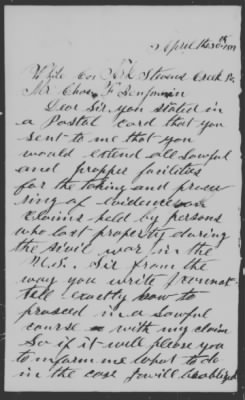 April the 30th
Mr Chas F Benjamin
Dear Sir you stated in
a Postal card that you
sent to me that you
would extend all lawful
and propper facilities
for the taking and procu
ring of evidence
claims held by persons
who lost property during
the sivil war in the
U.S. Sir from the
way you write I
tell exactly how to
prosced in a lawful
course with my claim
So if it will please you
to inform me what to do
in the case I will be obliged